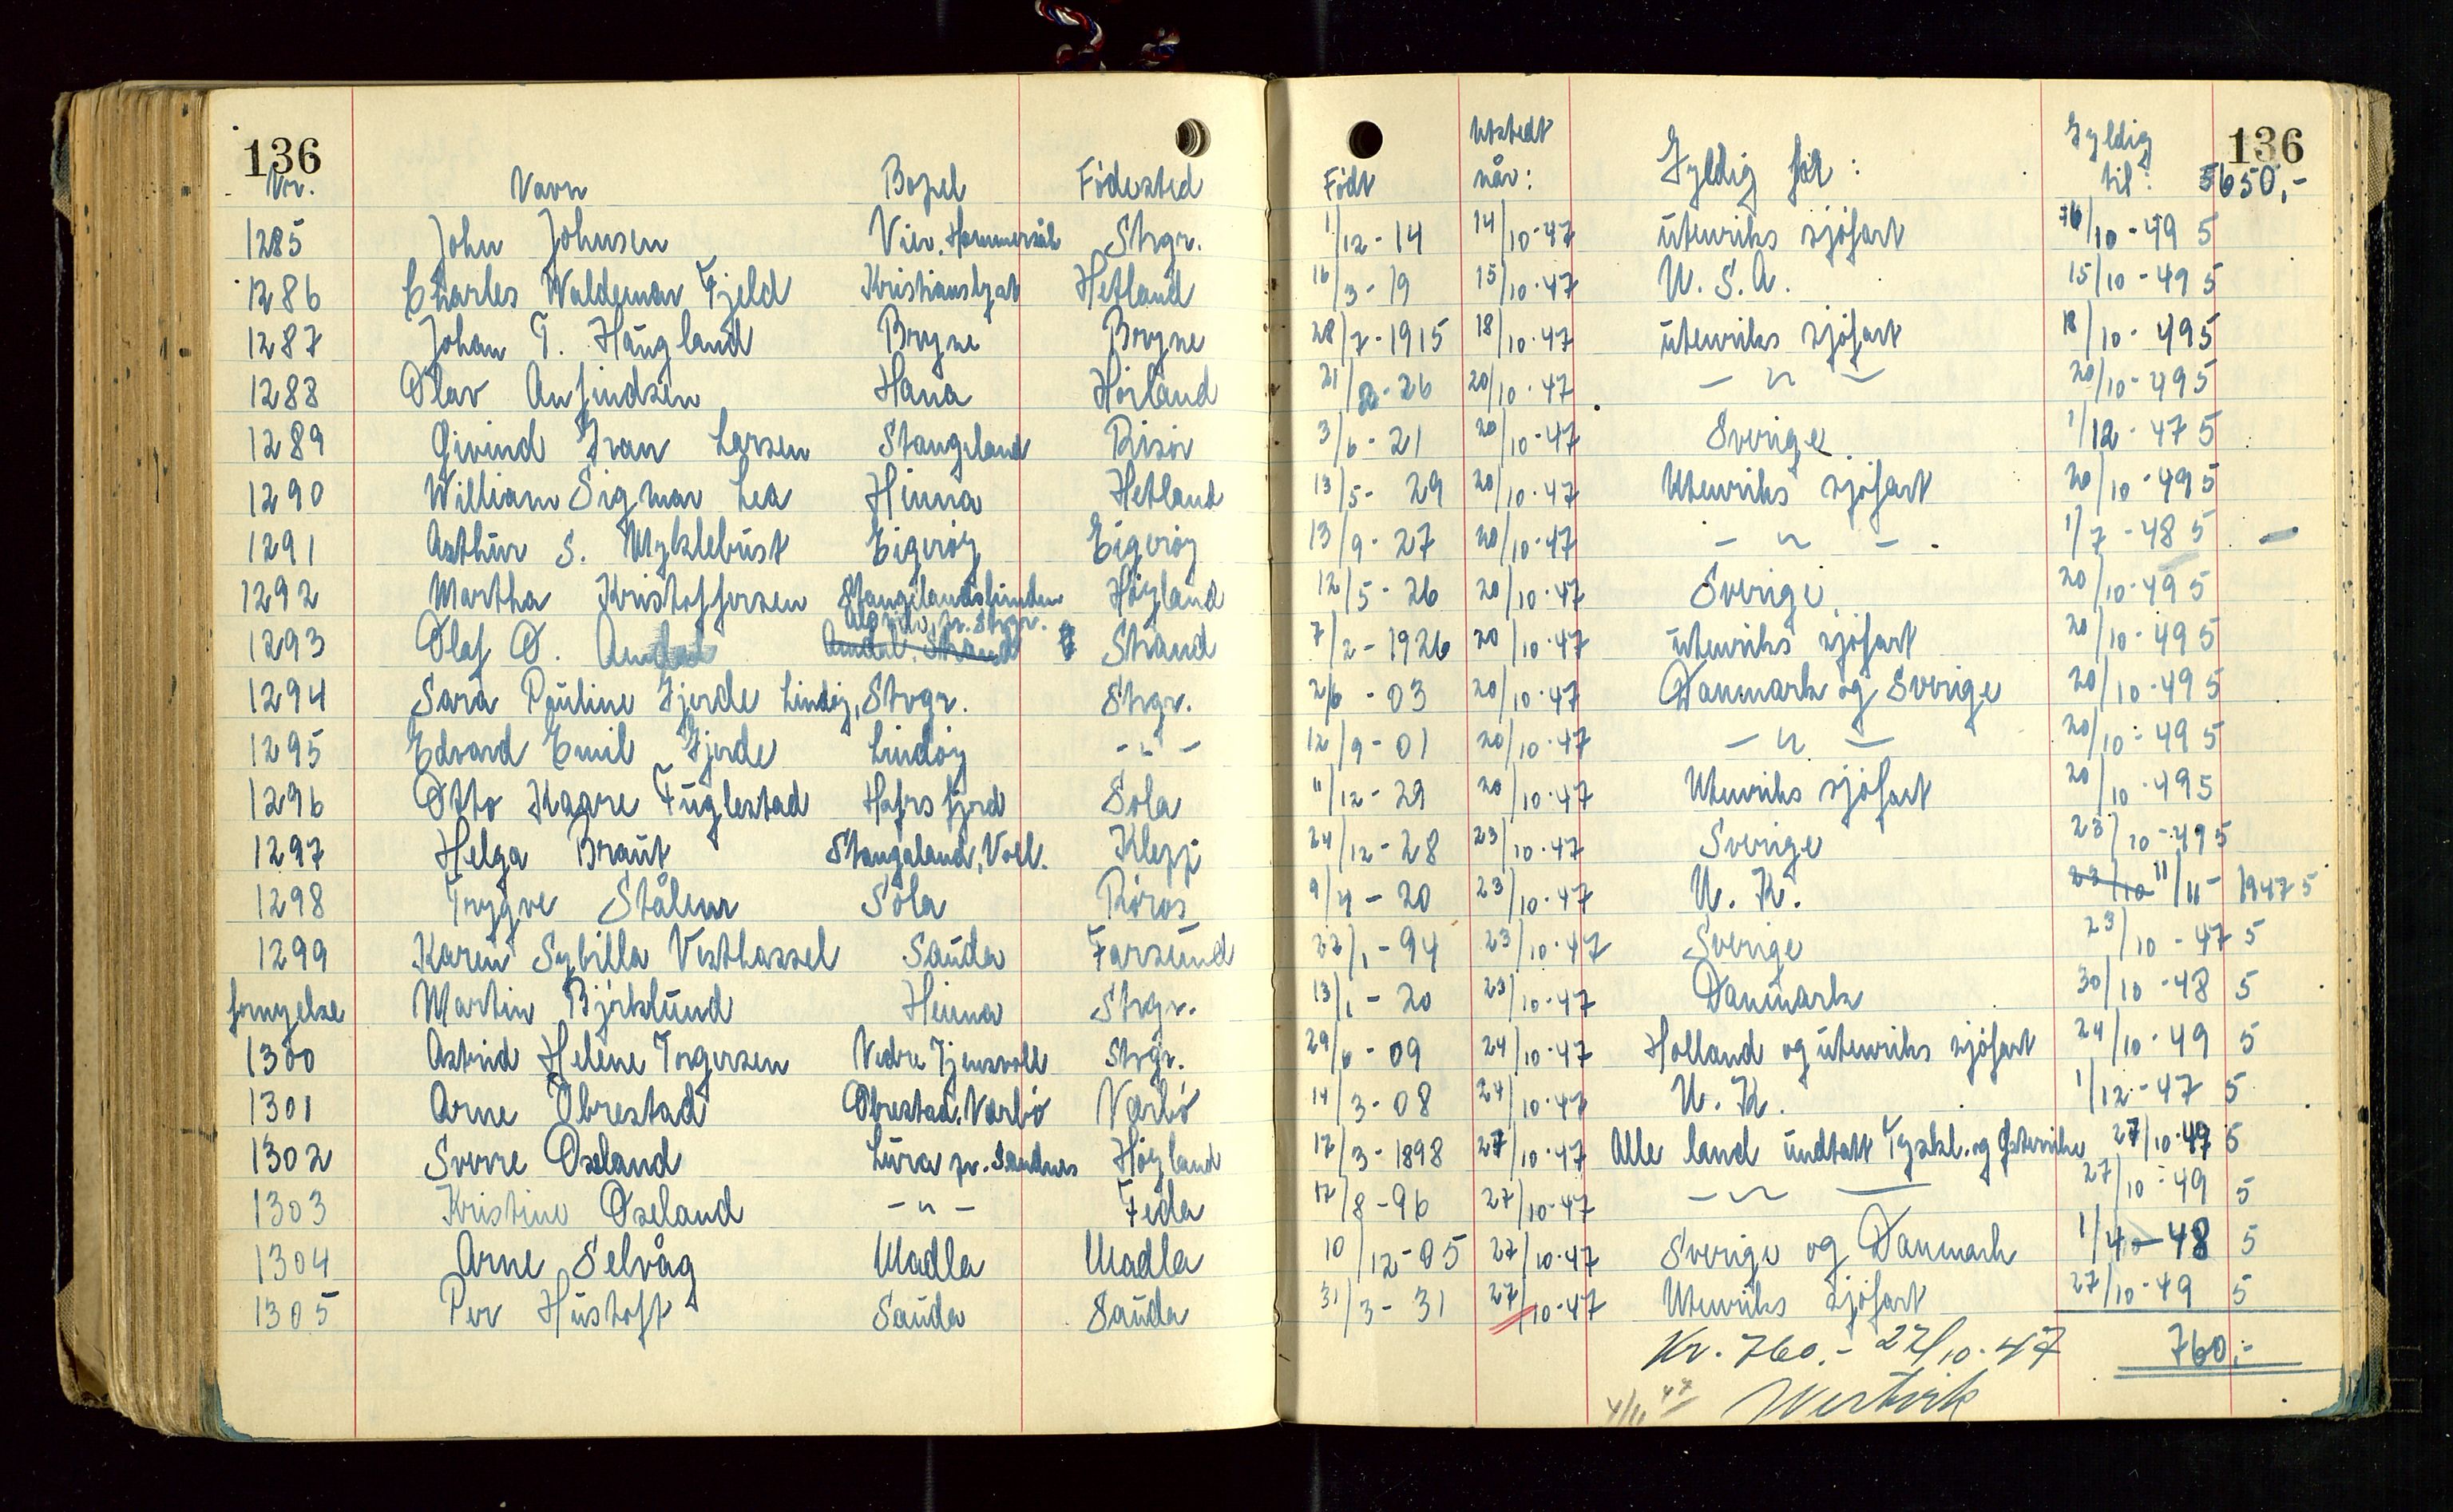 136 136
Nr. Navn Bopel Födested Födt Utstedt når: Gyldig for: Gyldig til: 5650,-
1285 John Johnsen Vier, Strgr. 1/12-14 14/10-47 utenriks sjöfart /10-49 5
1286 Charles Waldemar Fjeld Hetland 16/3-19 15/10-47 U.S.A. 15/10-49 5
1287 Johan T. Haugland Bryne Bryne 28/7-1915 18/10-47 utenriks sjöfart 18/10-49 5
1288 Olav Anfindsen Hana Horland 21/2-26 20/10-47 - " - 20/10-49 5
1289 Eivind Ivan Larsen Stangeland Risör 3/6-21 20/10-47 Sverige 1/12-47 5
1290 William Sigmar Lea Hinna Hetland 13/5-29 20/10-47 Utenriks sjöfart 20/10-49 5
1291 Arthur S. Myklebust Eigeröy Eigeröy 13/9-27 20/10-47 - " - 1/7-48 5 -
1292 Martha Kristoffersen Höyland 12/5-26 20/10-47 Sverige. 20/10-49 5
1293 Olaf O. Amdal Amdal, Strand Strand 7/2-1926 20/10-47 utenriks sjöfart 20/10-49 5
1294 Sara Pauline Gjerde Lindöy, Strgr. Strgr. 2/6-03 20/10-47 Danmark og Sverige 20/10-49 5
1295 Edvard Emil Gjerde Lindöy - " - 12/9-01 20/10-47 - " - 20/10-49 5
1296 Otto Kaare Fuglestad Hafrsfjord Sola 11/12-29 20/10-47 Utenriks sjöfart 20/10-49 5
1297 Helga Braut Stangaland, Voll. Klepp 24/12-28 23/10-47 Sverige 23/10-49 5
1298 Trygve Stålem Sola Röros 9/4-20 23/10-47 U.K. 23/10 11/11-1947 5
1299 Karen Sybilla Vesthassel Sauda Farsund 22/1-94 23/10-47 Sverige 23/10-47 5
fornyelse Martin Björklund Hinna Strgr. 13/1-20 23/10-47 Danmark 30/10-48 5
1300 Astrid Helene Torgersen Nedre Tjensvoll Strgr. 29/6-09 24/10-47 Holland og utenriks sjöfart 24/10-49 5
1301 Arne Obrestad Obrestad, Nærbö Nærbö 14/3-08 24/10-47 U.K. 1/12-47 5
1302 Sverre Oseland Lura pr. Sandnes Höyland 17/3-1898 27/10-47 Alle land undtatt Tyskl. og Österrike 27/10-49 5
1303 Kristine Oseland - " - Feda 17/8-96 27/10-47 - " - 27/10-49 5
1304 Arne Selvåg Madla Madla 10/12-05 27/10-47 Sverige og Danmark 1/4-48 5
1305 Per Hustoft Sauda Sauda 31/3-31 27/10-47 Utenriks sjöfart 27/10-49 5
Kr. 760.- 27/10-47 760,-
4/11 47 Westvik